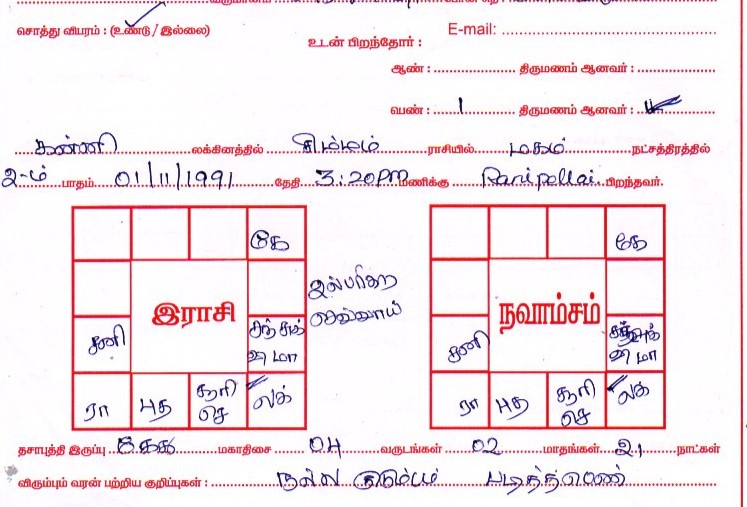 சொத்து விபரம் : (உண்டு / இல்லை)
E-mail:
உடன் பிறந்தோர் :
ஆண் : திருமணம் ஆனவர் :
பெண் : 1 திருமணம் ஆனவர் :
கன்னி லக்கினத்தில் சிம்மம் ராசியில் மகம் நட்சத்திரத்தில்
2-ம் பாதம் 01/11/1991 தேதி 3:20PM மணிக்கு Ranipettai பிறந்தவர்.
கே கே
இராசி நவாம்சம்
செவ்வாய்
சனி சனி
ரா புத சூரி செ லக் ரா புத சூரி செ லக்
தசாபுத்தி இருப்பு மகாதிசை 04 வருடங்கள் 02 மாதங்கள் 21 நாட்கள்
விரும்பும் வரன் பற்றிய குறிப்புகள் : நல்ல குடும்பம் படித்தபெண்